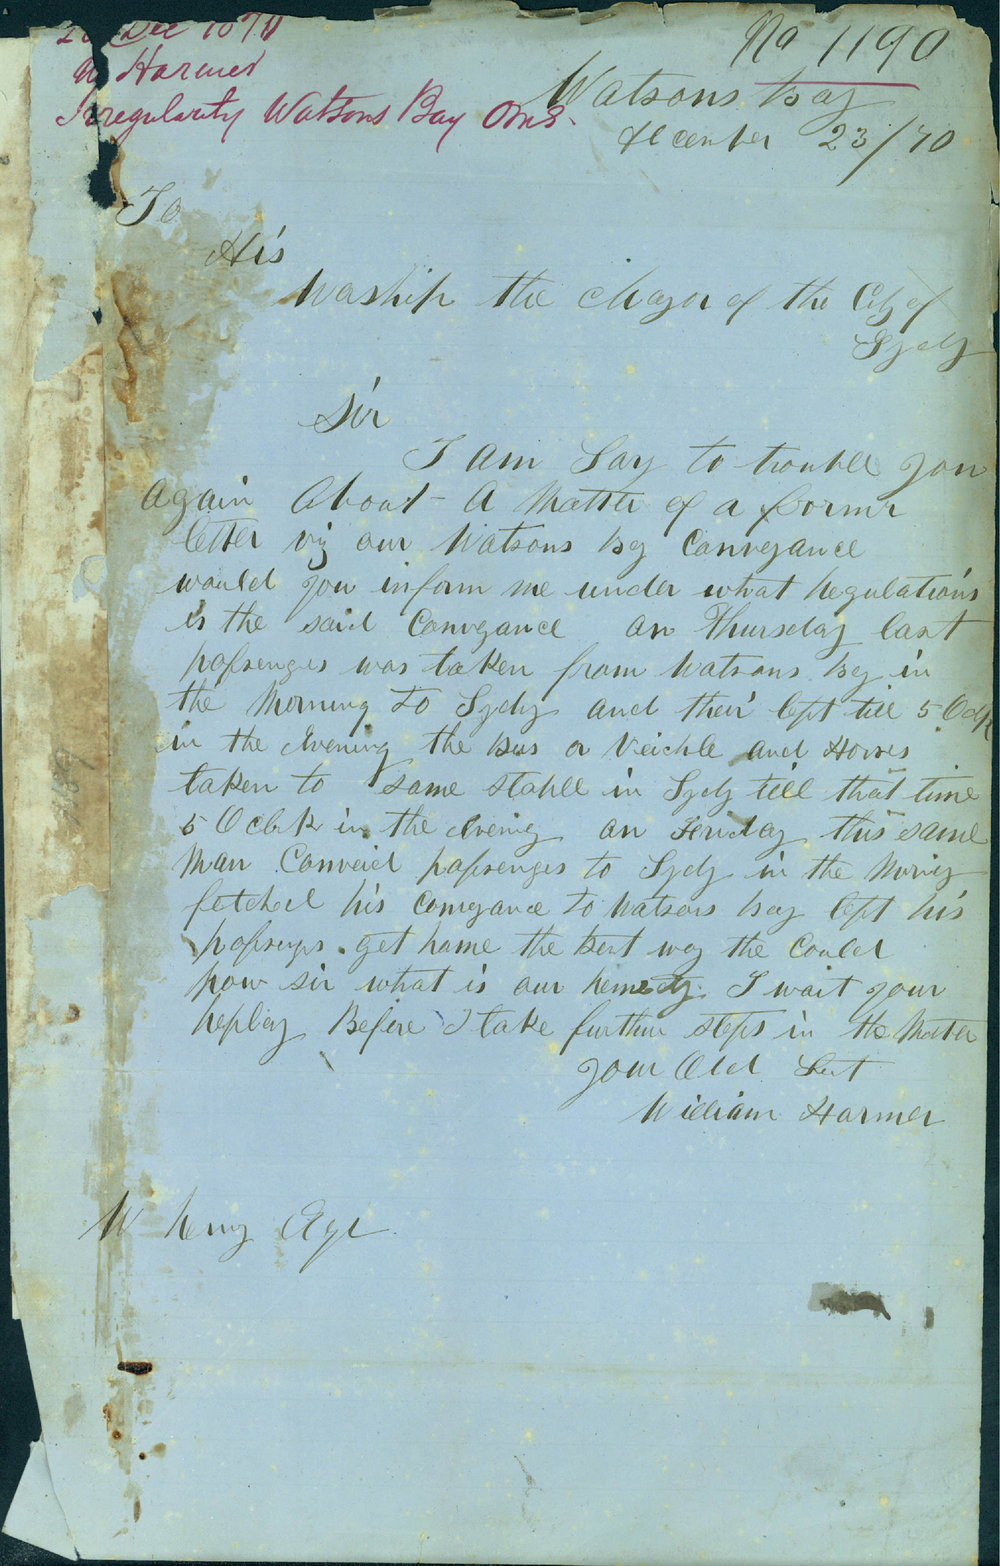 Dec 1870
W Harmer
Irregularity Watsons Bay Omb.
No 1190
Watsons Bay
December 23/70
To
His
Worship the Mayor of the City of
Sydy
Sir
I am Sory to trouble you
again About A Matter of a formr
letter viz our Watsons Bay Conveyance
would you inform me under what Regulations
is the said Conveyance on Thursday last
passenges was taken from Watsons Bay in
the Morning to Sydy and their left till 5 Oclk
in the Evening the Bus or Veichle and Horses
taken to some stable in Sydy till that time
5 Oclk in the Evening on Friday this same
Man Conveid passenges to Sydy in the Morning
fetched his Conveyance to Watsons Bay left his
passengs get home the best way the Could
Now sir what is our Remedy I wait your
Replay Before I take further steps in the Matter
Your Obd Sert
William Harmer
W Henry